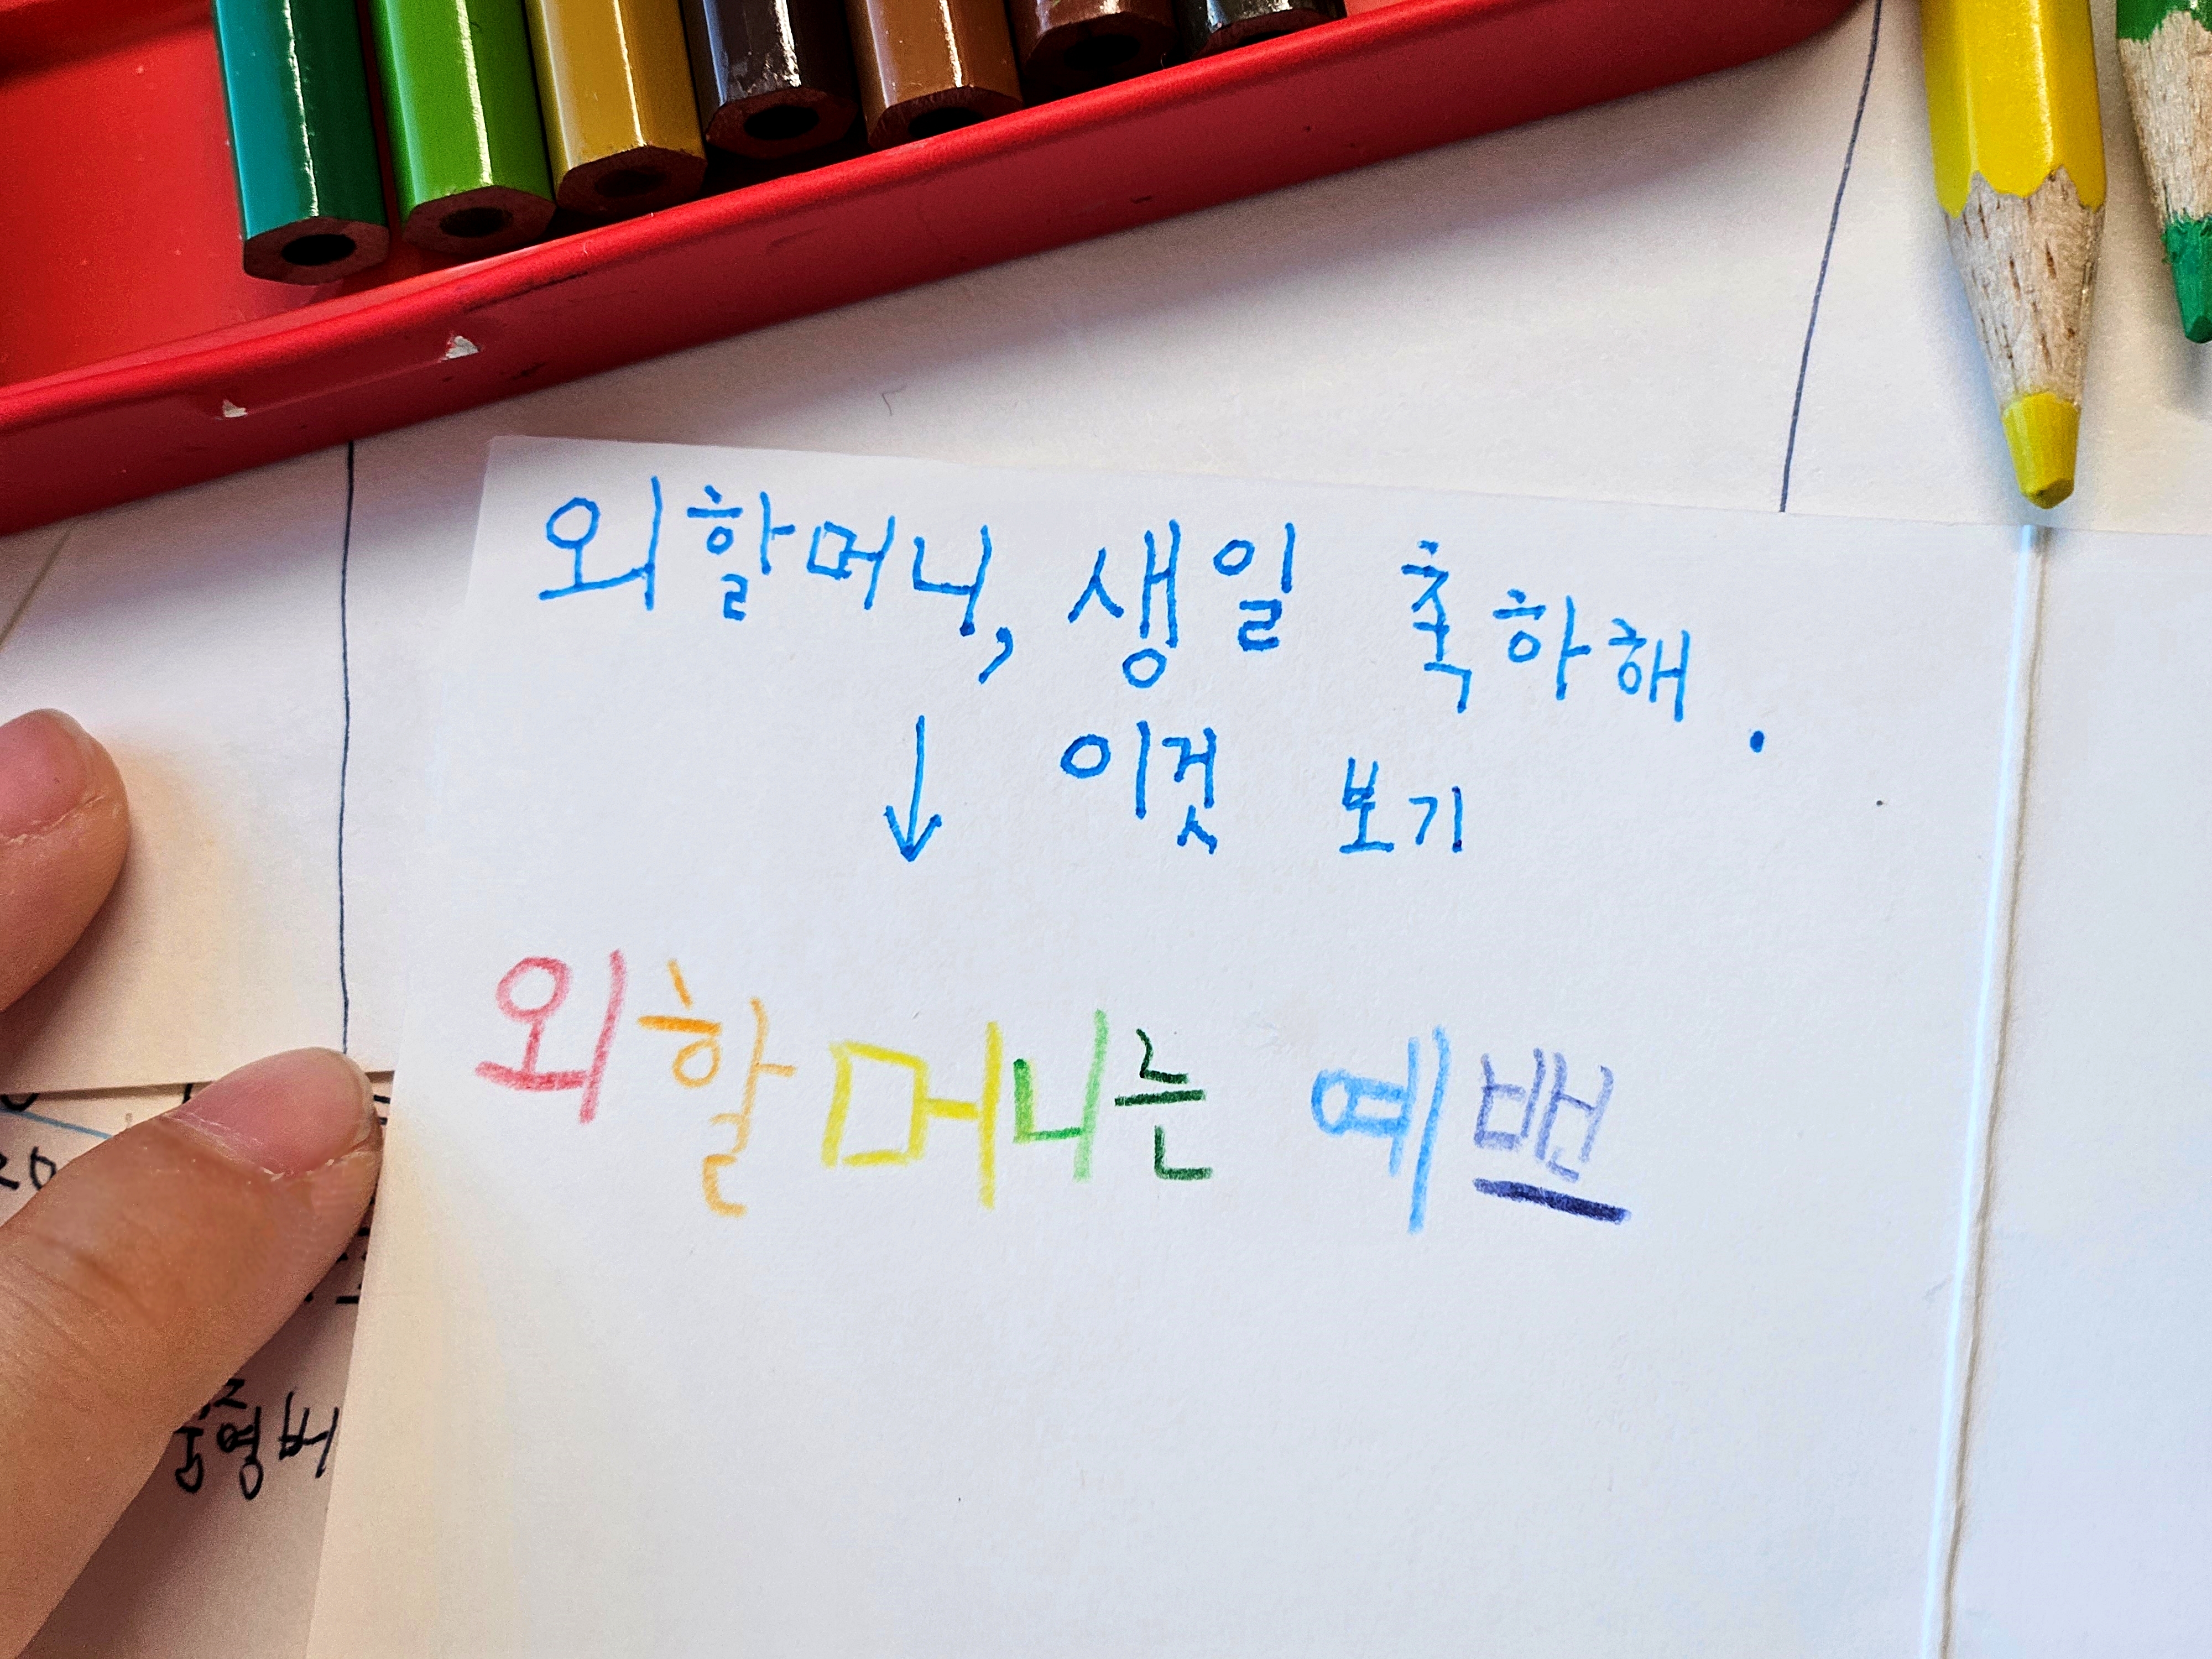 외할머니, 생일 축하해.
↓ 이것 보기
외할머니는 예뻔